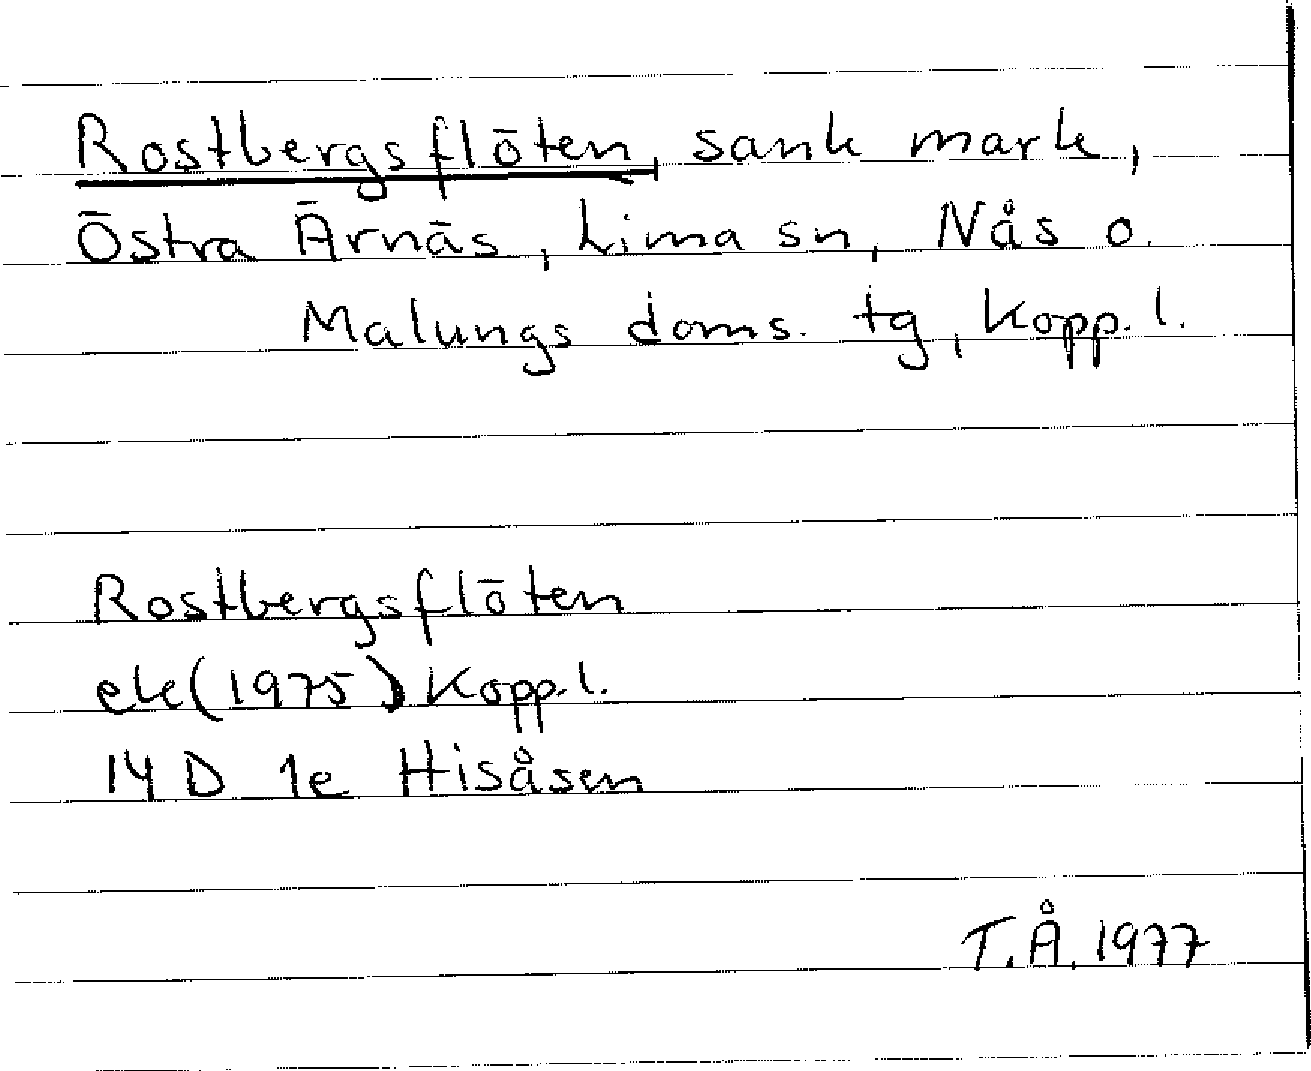 Rostbergsflöten, sank mark,
Östra Ärnäs, Lima sn, Nås o.
Malungs doms. tg, Kopp. l.
Rostbergsflöten
ek(1975) Kopp. l.
14 D 1e Hisåsen
T.Å. 1977